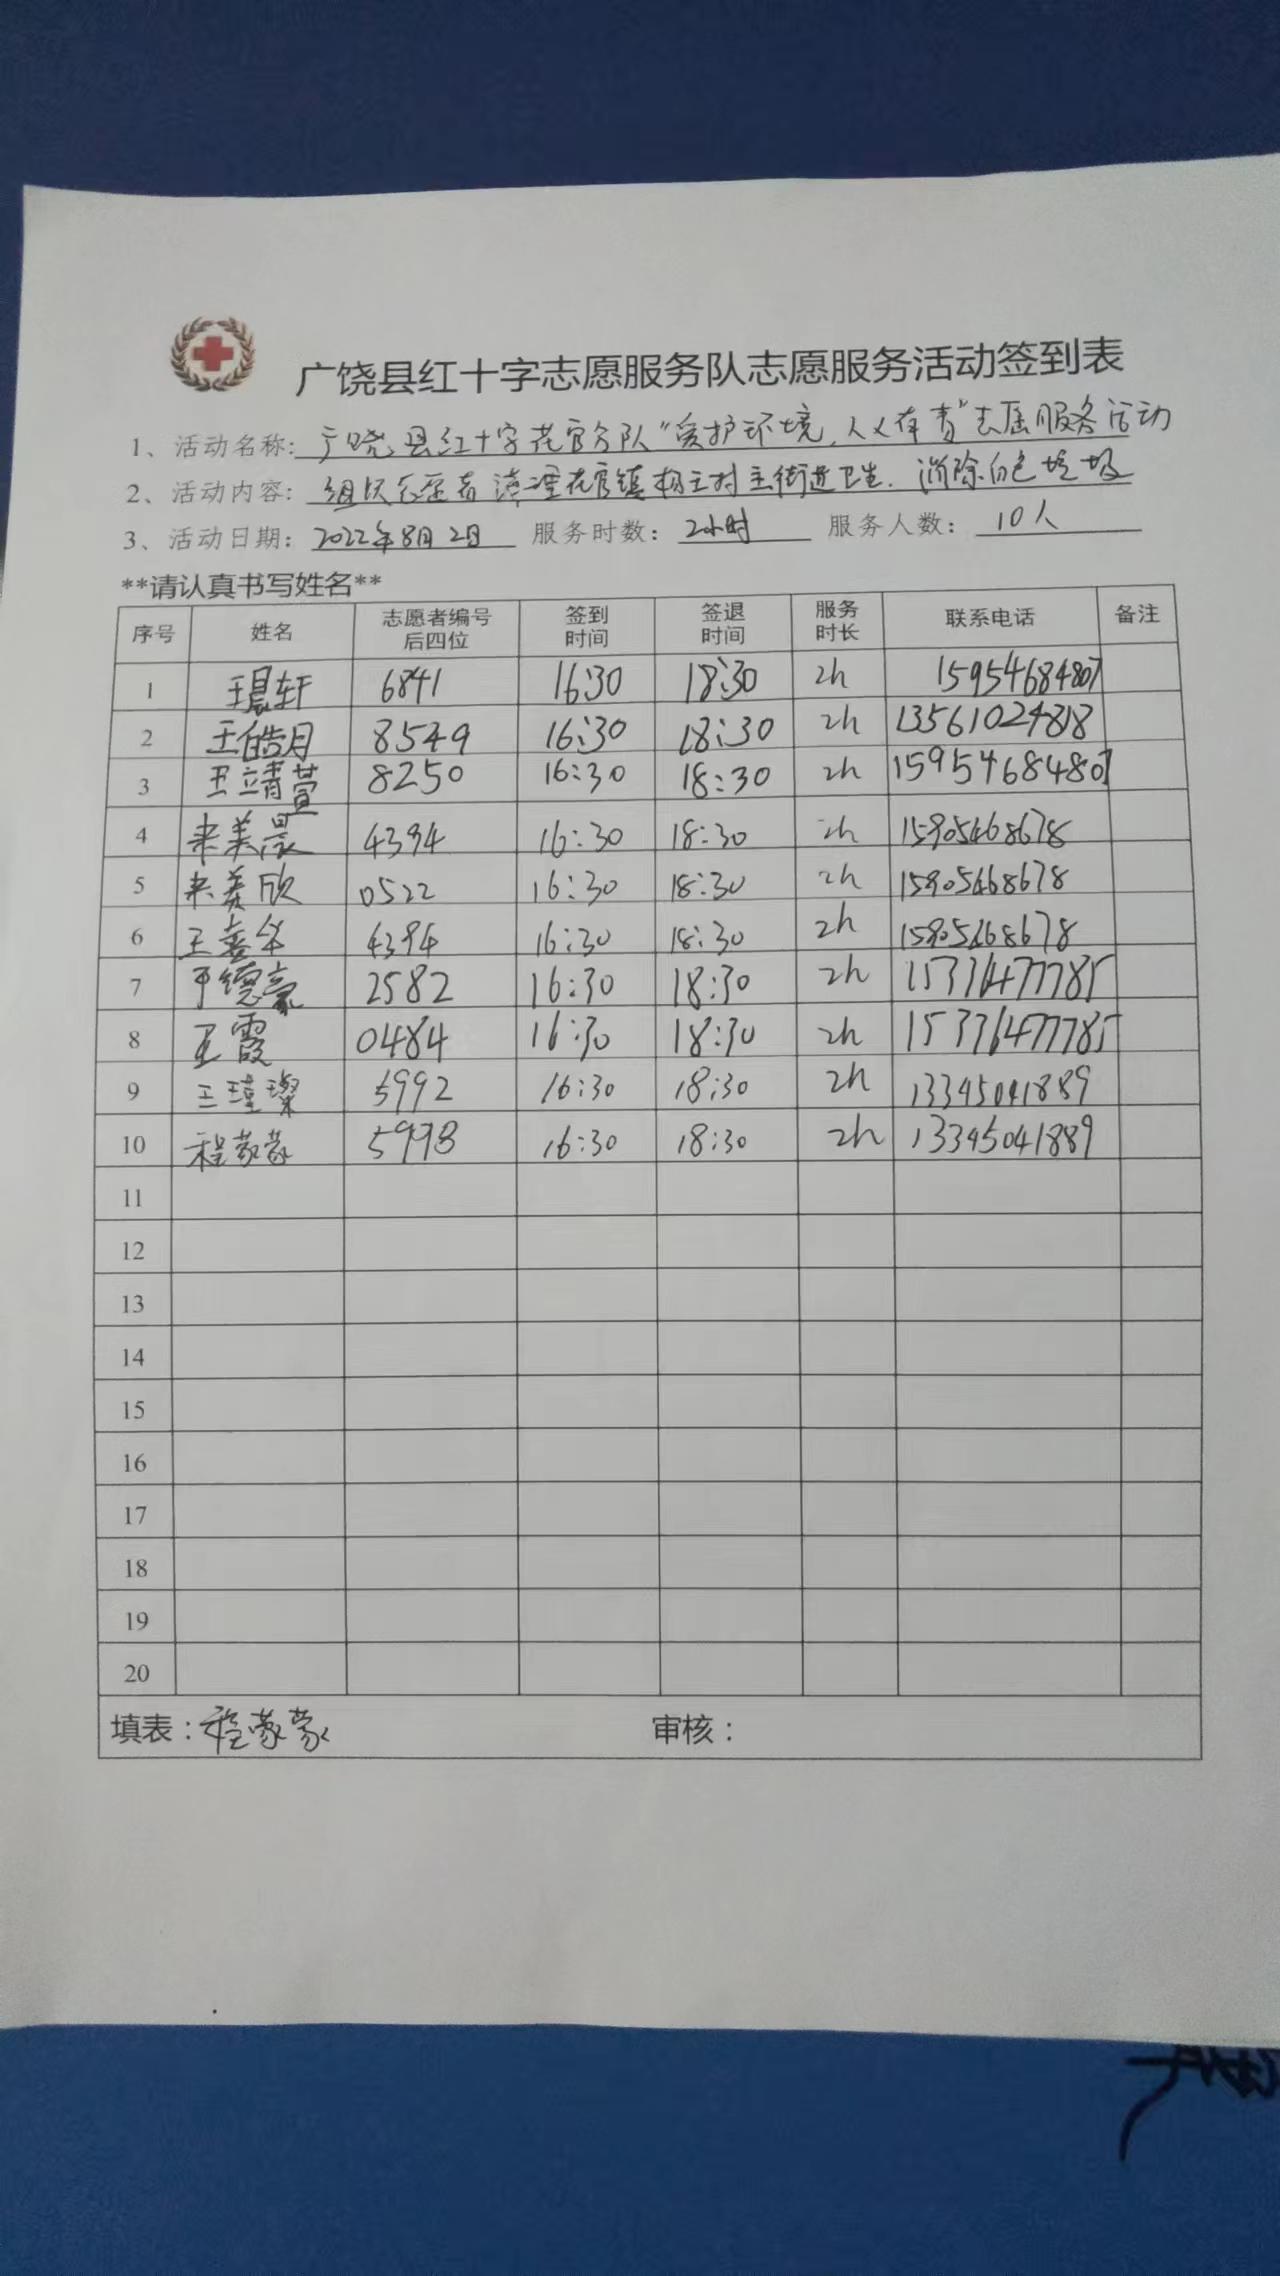 广饶县红十字志愿服务队志愿服务活动签到表
1、活动名称: 广饶县红十字花官分队"爱护环境,人人有责"志愿服务活动
2、活动内容: 组织志愿者清理花官镇 村主街道卫生.消除白色垃圾
3、活动日期: 2022年8月2日 服务时数: 2小时 服务人数: 10人
**请认真书写姓名**
序号 姓名 志愿者编号后四位 签到时间 签退时间 服务时长 联系电话 备注
1 王晨轩 6841 16:30 18:30 2h 15954684807
2 王皓月 8549 16:30 18:30 2h 13561024818
3 王靖萱 8250 16:30 18:30 2h 15954684807
4 来美晨 4394 16:30 18:30 2h 15905468678
5 来美欣 0522 16:30 18:30 2h 15905468678
6 王春华 4394 16:30 18:30 2h 15905468678
7 德豪 2582 16:30 18:30 2h 15376477785
8 王霞 0484 16:30 18:30 2h 15376477785
9 王瑾璨 5992 16:30 18:30 2h 13345041889
10 程蒙蒙 5998 16:30 18:30 2h 13345041889
11
12
13
14
15
16
17
18
19
20
填表:程蒙蒙 审核: